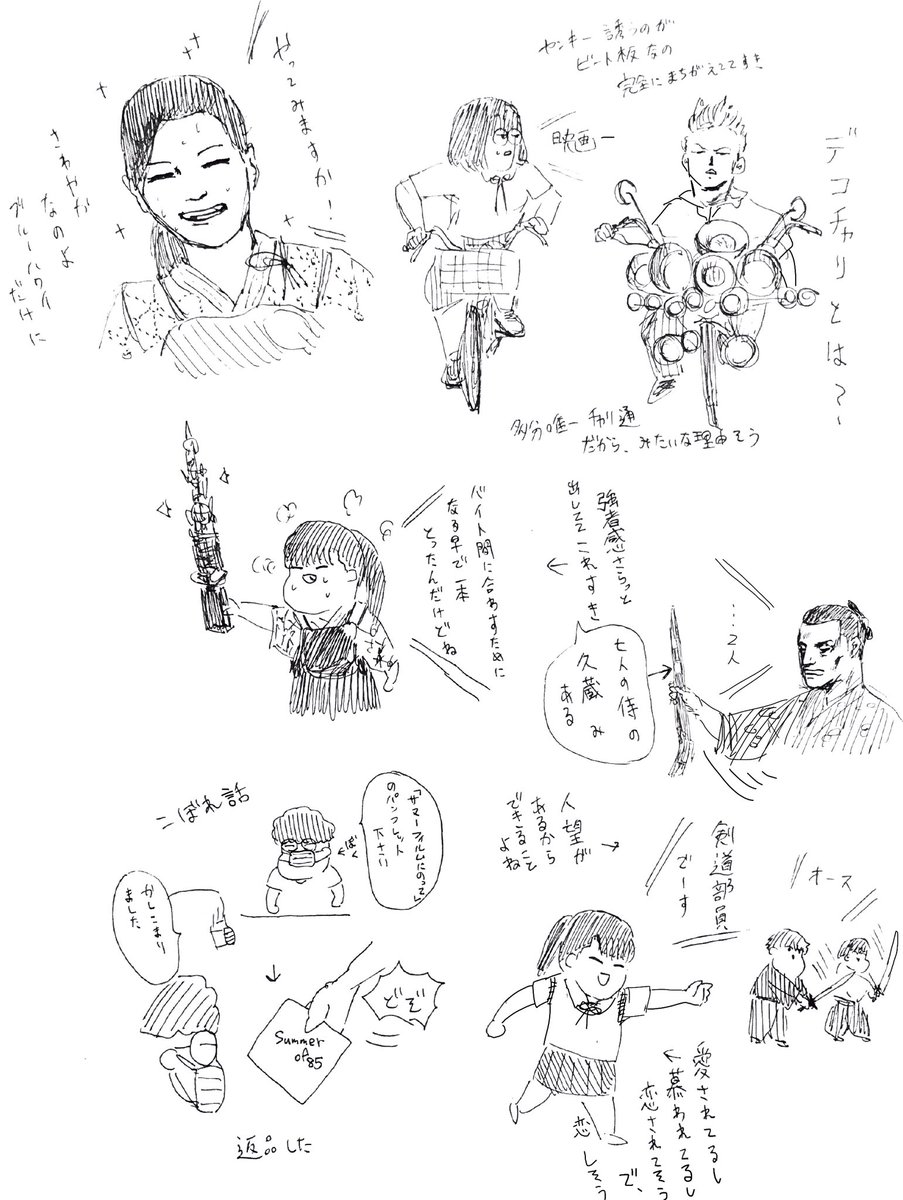 やってみますか!
さわやか
なのよ
ブルーハワイ
だけに
ヤンキー誘うのが
ビート板なの
完全にまちがえててすき
映画ー
デコチャリとは?
多分唯一チャリ通
だから、みたいな理由そう
バイト間に合わすために
なる早で一本
とったんだけどね
強者感さらっと
出しててこれすき
七人の侍の
久蔵み
ある
…2人
こぼれ話
「サマーフィルムにのって」
のパンフレット
下さい
ぼく
かしこまり
ました
どぞ
Summer
of 85
返品した
人望が
あるから
できること
よね
剣道部員
でーす
オース
愛されてるし
慕われてるし
恋されてそう
で、
恋しそう